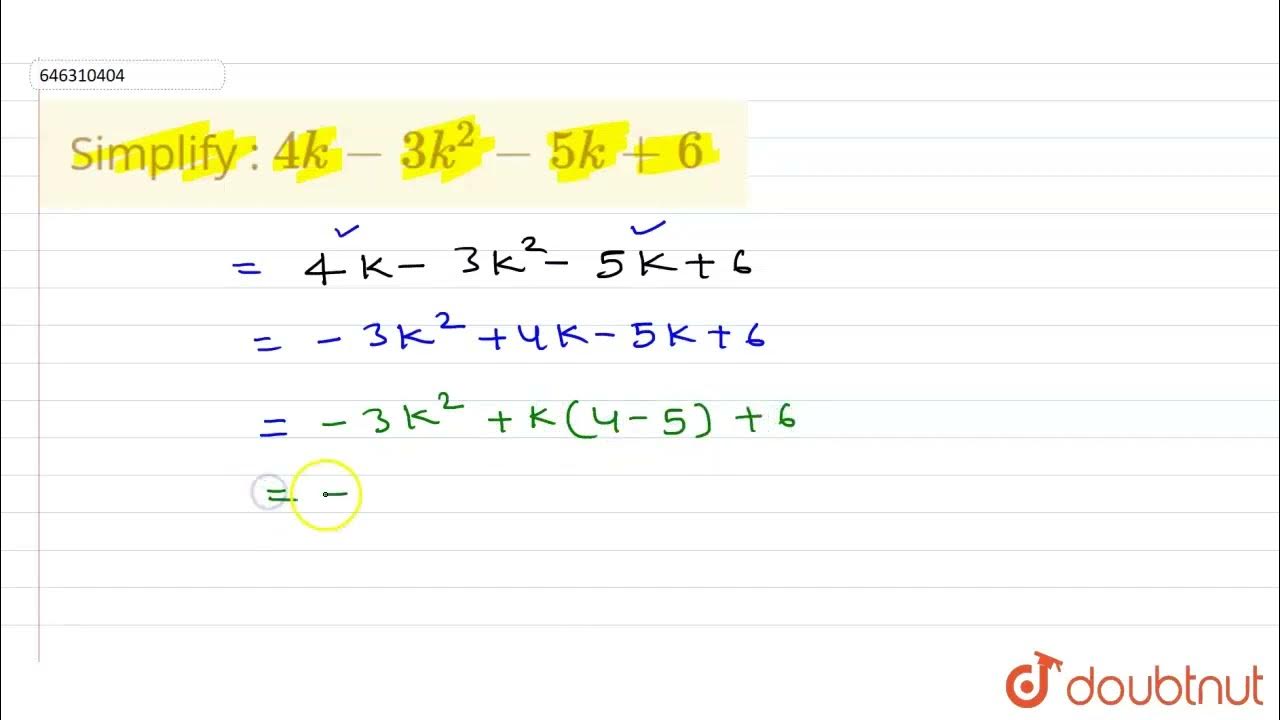 646310404
Simplify : 4k − 3k² − 5k + 6
= 4k − 3k² − 5k + 6
= − 3k² + 4k − 5k + 6
= − 3k² + k(4 − 5) + 6
= −
doubtnut